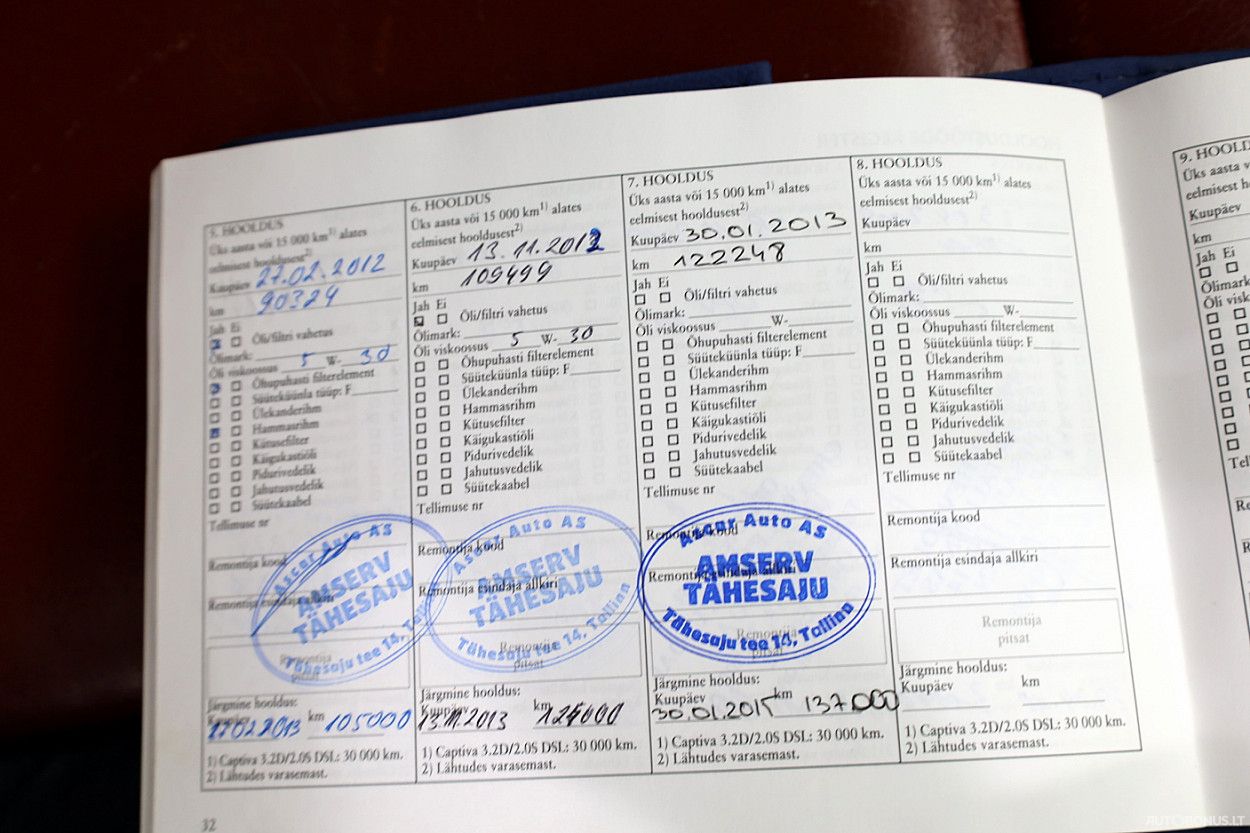 5. HOOLDUS
Üks aasta või 15 000 km1) alates
eelmisest hooldusest2)
Kuupäev 27.02.2012
km 90324
Jah Ei
Õli/filtri vahetus
Õlimark:
Õli viskoossus 5 W- 30
Õhupuhasti filterelement
Süüteküünla tüüp: F
Ülekanderihm
Hammasrihm
Kütusefilter
Käigukastiõli
Pidurivedelik
Jahutusvedelik
Süütekaabel
Tellimuse nr
Remontija kood
Remontija esindaja allkiri
Ascar Auto AS
AMSERV
TÄHESAJU
Tähesaju tee 14,
Remontija
pitsat
Järgmine hooldus:
Kuupäev km
27.02.2013 105000
1) Captiva 3.2D/2.0S DSL: 30 000 km.
2) Lähtudes varasemast.
32
6. HOOLDUS
Üks aasta või 15 000 km1) alates
eelmisest hooldusest2)
Kuupäev 13.11.2012
km 109499
Jah Ei
Õli/filtri vahetus
Õlimark:
Õli viskoossus 5 W- 30
Õhupuhasti filterelement
Süüteküünla tüüp: F
Ülekanderihm
Hammasrihm
Kütusefilter
Käigukastiõli
Pidurivedelik
Jahutusvedelik
Süütekaabel
Tellimuse nr
Remontija kood
Remontija esindaja allkiri
Ascar Auto AS
AMSERV
TÄHESAJU
Tähesaju tee 14, Tallinn
Remontija
pitsat
Järgmine hooldus:
Kuupäev km
13.11.2013 124000
1) Captiva 3.2D/2.0S DSL: 30 000 km.
2) Lähtudes varasemast.
7. HOOLDUS
Üks aasta või 15 000 km1) alates
eelmisest hooldusest2)
Kuupäev 30.01.2013
km 122248
Jah Ei
Õli/filtri vahetus
Õlimark:
Õli viskoossus W-
Õhupuhasti filterelement
Süüteküünla tüüp: F
Ülekanderihm
Hammasrihm
Kütusefilter
Käigukastiõli
Pidurivedelik
Jahutusvedelik
Süütekaabel
Tellimuse nr
Remontija kood
Remontija esindaja allkiri
Ascar Auto AS
AMSERV
TÄHESAJU
Tähesaju tee 14, Tallinn
Remontija
pitsat
Järgmine hooldus:
Kuupäev km
30.01.2015 137.000
1) Captiva 3.2D/2.0S DSL: 30 000 km.
2) Lähtudes varasemast.
8. HOOLDUS
Üks aasta või 15 000 km1) alates
eelmisest hooldusest2)
Kuupäev
km
Jah Ei
Õli/filtri vahetus
Õlimark:
Õli viskoossus W-
Õhupuhasti filterelement
Süüteküünla tüüp: F
Ülekanderihm
Hammasrihm
Kütusefilter
Käigukastiõli
Pidurivedelik
Jahutusvedelik
Süütekaabel
Tellimuse nr
Remontija kood
Remontija esindaja allkiri
Remontija
pitsat
Järgmine hooldus:
Kuupäev km
1) Captiva 3.2D/2.0S DSL: 30 000 km.
2) Lähtudes varasemast.
9. HOOLD
Üks aasta v
eelmisest h
Kuupäev
km
Jah Ei
Õlimark
Õli visk
AUTOBONUS.LT